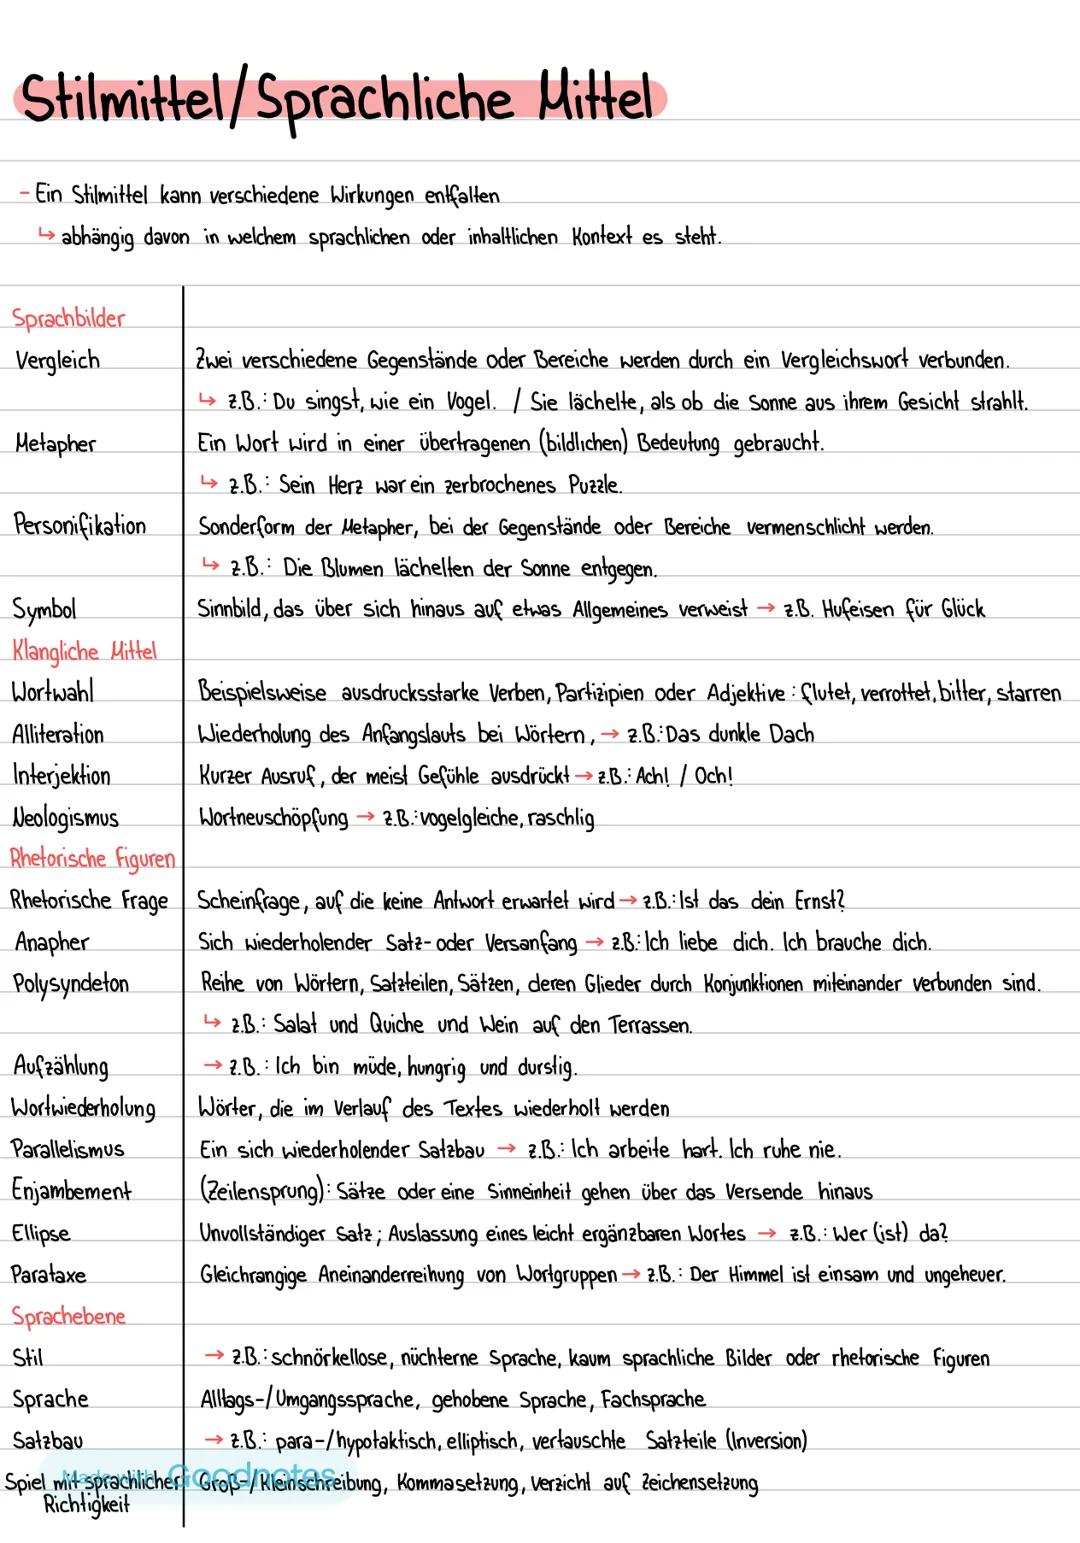 Stilmittel/Sprachliche Mittel
- Ein Stilmittel kann verschiedene Wirkungen entfalten
↳ abhängig davon in welchem sprachlichen oder inhaltlichen Kontext es steht.
Sprachbilder
Vergleich Zwei verschiedene Gegenstände oder Bereiche werden durch ein Vergleichswort verbunden.
↳ z.B.: Du singst, wie ein Vogel. / Sie lächelte, als ob die Sonne aus ihrem Gesicht strahlt.
Metapher Ein Wort wird in einer übertragenen (bildlichen) Bedeutung gebraucht.
↳ z.B.: Sein Herz war ein zerbrochenes Puzzle.
Personifikation Sonderform der Metapher, bei der Gegenstände oder Bereiche vermenschlicht werden.
↳ z.B.: Die Blumen lächelten der Sonne entgegen.
Symbol Sinnbild, das über sich hinaus auf etwas Allgemeines verweist → z.B. Hufeisen für Glück
Klangliche Mittel
Wortwahl Beispielsweise ausdrucksstarke Verben, Partizipien oder Adjektive : flutet, verrottet, bitter, starren
Alliteration Wiederholung des Anfangslauts bei Wörtern, → z.B.: Das dunkle Dach
Interjektion Kurzer Ausruf, der meist Gefühle ausdrückt → z.B.: Ach! / Och!
Neologismus Wortneuschöpfung → z.B.: vogelgleiche, raschlig
Rhetorische Figuren
Rhetorische Frage Scheinfrage, auf die keine Antwort erwartet wird → z.B.: Ist das dein Ernst?
Anapher Sich wiederholender Satz- oder Versanfang → z.B.: Ich liebe dich. Ich brauche dich.
Polysyndeton Reihe von Wörtern, Satzteilen, Sätzen, deren Glieder durch Konjunktionen miteinander verbunden sind.
↳ z.B.: Salat und Quiche und Wein auf den Terrassen.
Aufzählung → z.B.: Ich bin müde, hungrig und durstig.
Wortwiederholung Wörter, die im Verlauf des Textes wiederholt werden
Parallelismus Ein sich wiederholender Satzbau → z.B.: Ich arbeite hart. Ich ruhe nie.
Enjambement (Zeilensprung): Sätze oder eine Sinneinheit gehen über das Versende hinaus
Ellipse Unvollständiger Satz; Auslassung eines leicht ergänzbaren Wortes → z.B.: Wer (ist) da?
Parataxe Gleichrangige Aneinanderreihung von Wortgruppen → z.B.: Der Himmel ist einsam und ungeheuer.
Sprachebene
Stil → z.B.: schnörkellose, nüchterne Sprache, kaum sprachliche Bilder oder rhetorische Figuren
Sprache Alltags-/Umgangssprache, gehobene Sprache, Fachsprache
Satzbau → z.B.: para-/hypotaktisch, elliptisch, vertauschte Satzteile (Inversion)
Made with Goodnotes
Spiel mit sprachlicher Groß-/Kleinschreibung, Kommasetzung, Verzicht auf Zeichensetzung
Richtigkeit